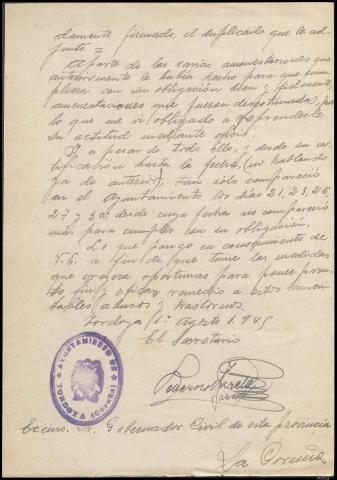 damente firmado, el duplicado que le ad-
junto. =
Aparte de las varias amonestaciones que
anteriormente le había hecho para que cum-
pliera con su obligación bien y fielmente,
amonestaciones que fueron desestimadas, por
lo que me vi obligado a reprenderle
su actitud mediante oficio.
Y a pesar de todo ello, y desde su no-
tificación hasta la fecha (no hablando
ya de anterior), tan sólo compareció
en el Ayuntamiento los días 21, 23, 26,
27 y 30: desde cuya fecha no compareció
más para cumplir con su obligación.
Lo que pongo en conocimiento de
V.S. a fin de que tome las medidas
que creyera oportunas para poner pron-
to fin y eficaz remedio a estos lamen-
tables abusos y trastornos.
Tordoya 1º Agosto 1.945
El Secretario
AYUNTAMIENTO DE
TORDOYA (Coruña)
Excmo. Sr. Gobernador Civil de esta provincia
La Coruña